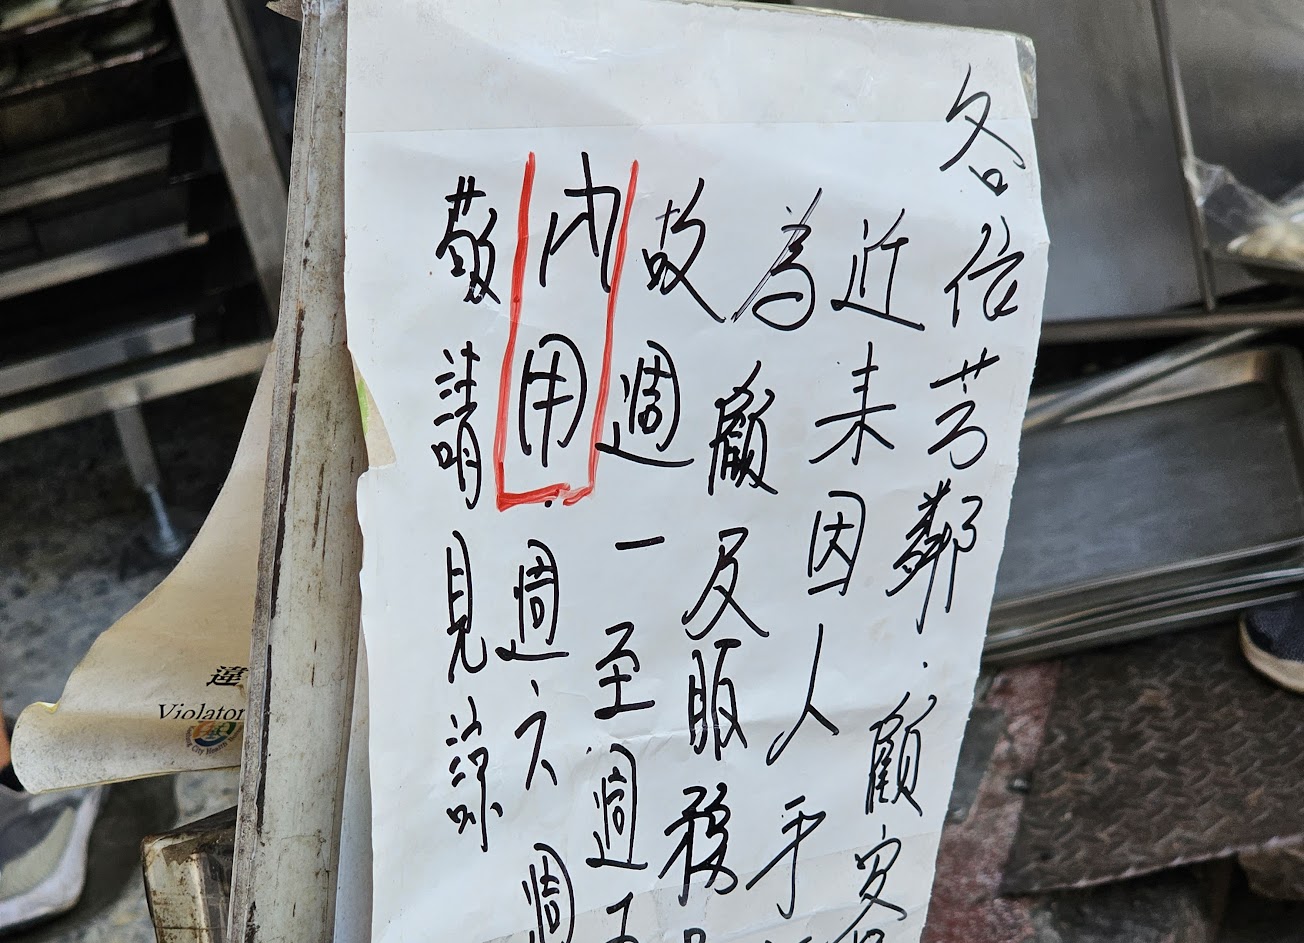 各位芳鄰.顧客
近來因人手
為顧及服務
故週一至週五
內用.週六週
敬請見諒
違
Violator